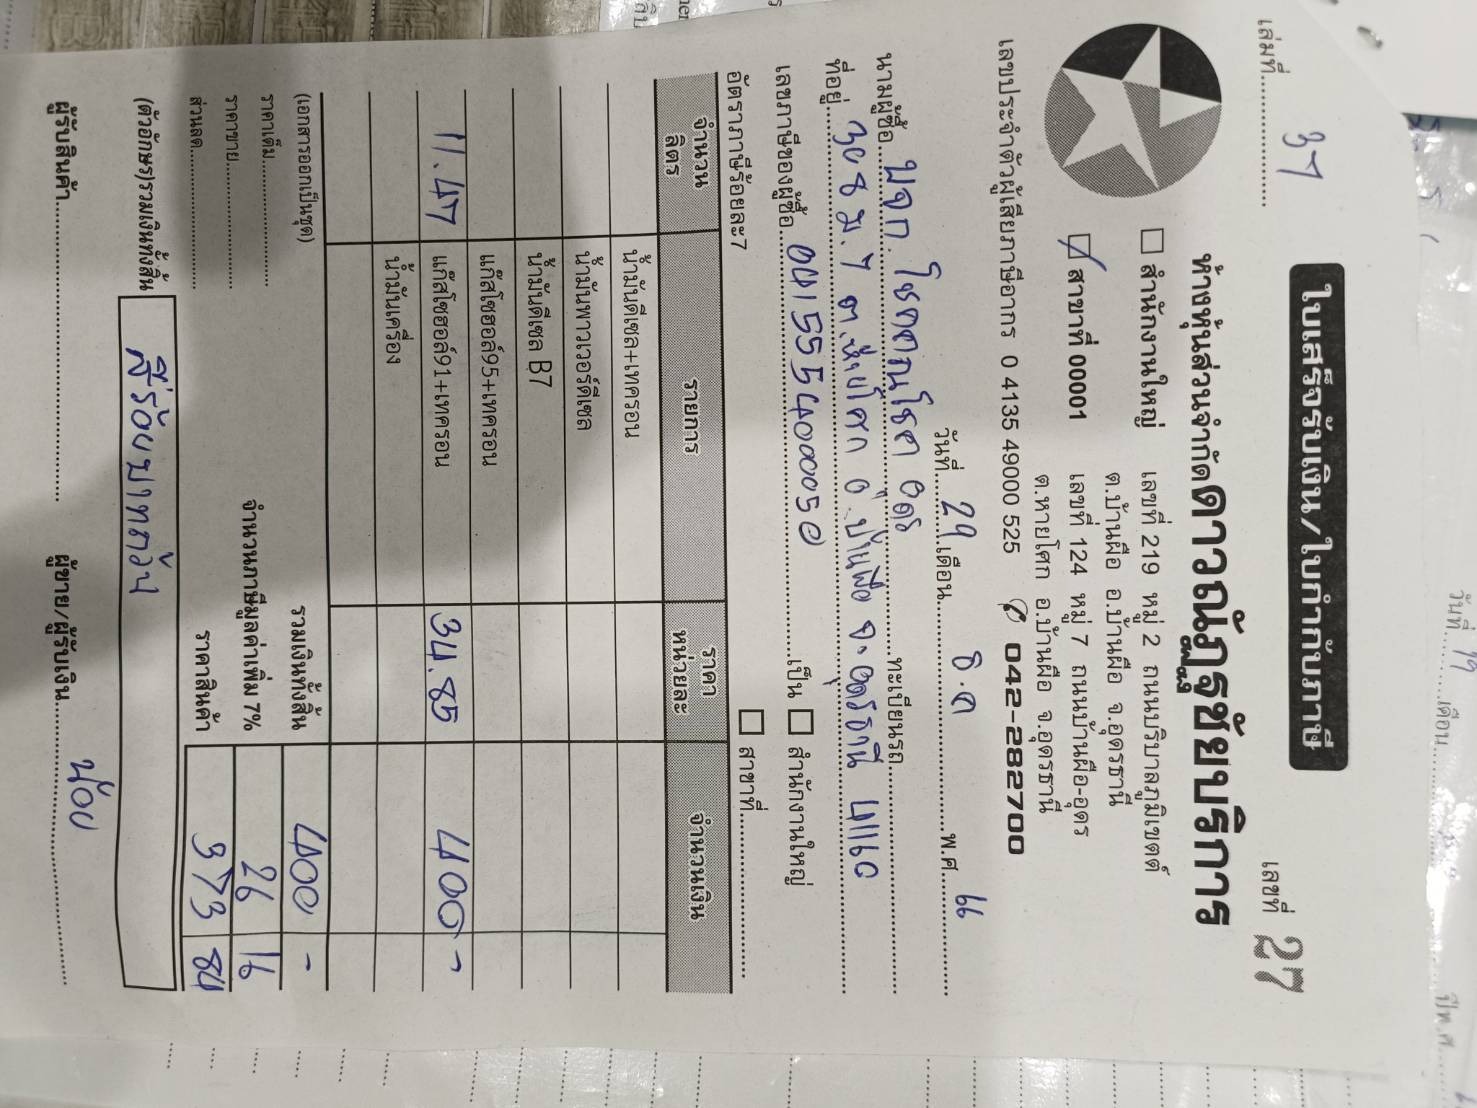 ใบเสร็จรับเงิน/ใบกำกับภาษี
เล่มที่ 37 เลขที่ 27
ห้างหุ้นส่วนจำกัดดาวณัฎฐชัยบริการ
สำนักงานใหญ่ เลขที่ 219 หมู่ 2 ถนนบริบาลภูมิเขตต์
ต.บ้านผือ อ.บ้านผือ จ.อุดรธานี
สาขาที่ 00001 เลขที่ 124 หมู่ 7 ถนนบ้านผือ-อุดร
ต.หายโศก อ.บ้านผือ จ.อุดรธานี
เลขประจำตัวผู้เสียภาษีอากร 0 4135 49000 525 042-282700
วันที่ 29 เดือน ธ.ค พ.ศ. 66
นามผู้ซื้อ บจก. โชคคณโชค อุดร ทะเบียนรถ
ที่อยู่ 308 ม.7 ต.หายโศก อ.บ้านผือ จ.อุดรธานี 41160
เลขภาษีของผู้ซื้อ 0415554000050 เป็น สำนักงานใหญ่
อัตราภาษีร้อยละ7 สาขาที่
จำนวน ลิตร รายการ ราคา หน่วยละ จำนวนเงิน
น้ำมันดีเซล+เทครอน
น้ำมันพาวเวอร์ดีเซล
น้ำมันดีเซล B7
แก๊สโซฮอล์95+เทครอน
11.47 แก๊สโซฮอล์91+เทครอน 34.85 400 -
น้ำมันเครื่อง
(เอกสารออกเป็นชุด) รวมเงินทั้งสิ้น 400 -
ราคาเต็ม
ราคาขาย จำนวนภาษีมูลค่าเพิ่ม 7% 26 16
ส่วนลด ราคาสินค้า 373 84
(ตัวอักษร)รวมเงินทั้งสิ้น สี่ร้อยบาทถ้วน
ผู้รับสินค้า ผู้ขาย/ผู้รับเงิน น้อย
วันที่ เดือน